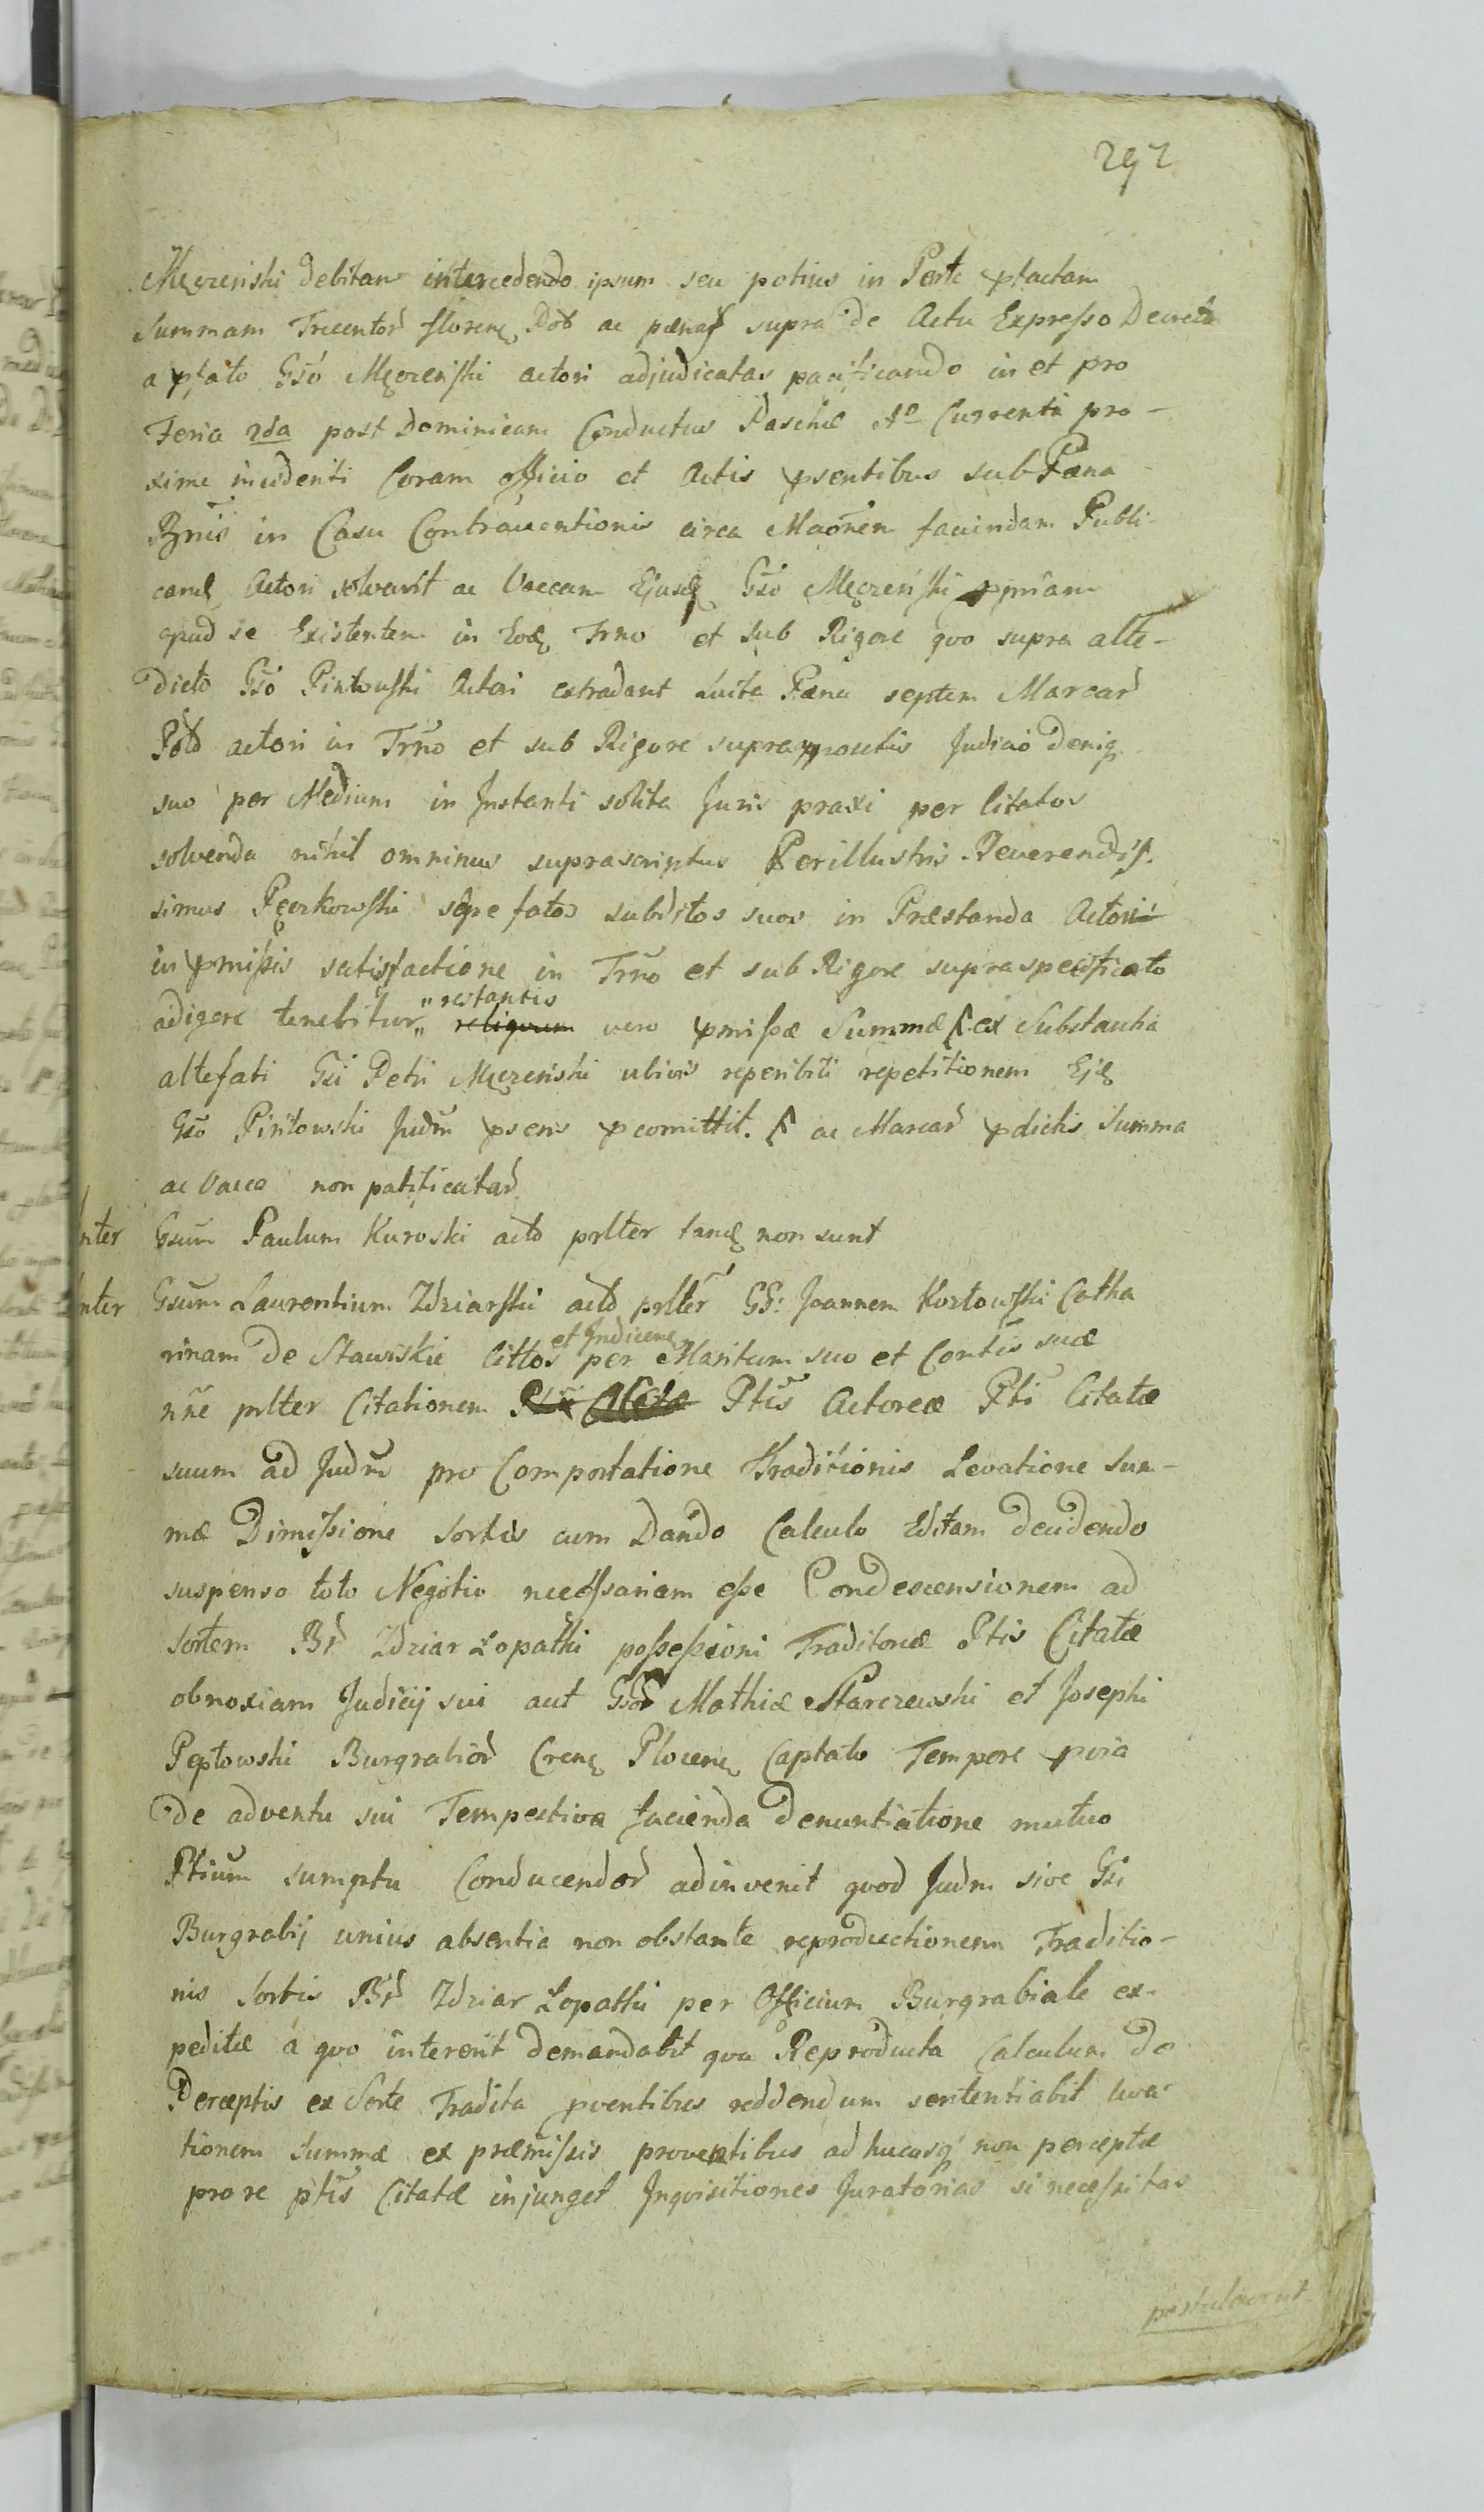 292
Męzeński debitam intercedendo ipsum seu potius in Parte ptactam
Summam Trecentor floren Pol ac pænas supra de Actu Expresso Decreto
a pfato Gso Męzeński actori adjudicatas pacificando in et pro
Feria 2da post Dominicam Conductus Paschæ Ao Currenti pro-
xime incidenti Coram officio et Actis psentibus sub Pæna
Bnis in Casu Contraventionis circa Maonem faciendam Publi-
cand Actori solvant ac Vaccam Ejusd Gso Męzeński ppriam
apud se Existentem in Eod Trno et sub Rigore quo supra alte-
dicto Gso Pintowski Actori extradant Luita Pæna septem Marcar
Pol actori in Trno et sub Rigore supra Judicio deniq
suo per Medium in Instanti solita Juris praxi per Citatos
solvenda nihil ominus suprascriptus Perillustris Reverendis-
simus Pęczkowski sæpe fatos subditos suos in Præstanda Actori
in pmissis satisfactione in Trno et sub Rigore supraspecificato
adigere tenebitur "restantis
reliquum vero pmissæ Summæ ex Substantia
altefati Gsi Petri Męzeński ubivis reperibili repetitionem Ejd
Gso Pintowski Judm psens pcomittit. ac Marcar pdictis Summa
ac Vacca non patificatar
Inter Gsum Paulum Kuroski acto prlter tand non sunt
Inter Gsum Laurentium Zdziarski acto prlter GG: Joannem Kozłowski Catha
rinam de Stawiskie Cittos et Judicem per Maritum suo et Contis suæ
nne prlter Citationem Ptis Actoreæ Pti Citatæ
suum ad Judm pro Comportatione Traditionis Levatione Sum-
mæ Dimissione sortis cum Dando Calculo Editam decidendo
suspenso toto Negotio necessariam esse Condescensionem ad
sortem Br Zdziar Łopatki possessioni Traditoriæ Ptis Citatæ
obnoxiam Judicij sui aut Gsor Mathiæ Starczewski et Josephi
Pepłowski Burgrabior Cren Plocen Captato Tempore pvia
de adventu sui Tempestiva facienda denuntiatione mutuo
Ptium sumptu Conducendor adinvenit quod Judm sive Gsi
Burgrabij unius absentia non obstante reproductionem Traditio-
nis Sortis Br Zdziar Łopatki per Officium Burgrabiale ex-
peditæ a quo intererit demandabit qua Reproducta Calculum de
Perceptis ex Sorte Tradita pventibus reddendum sententiabit leva-
tionem Summæ ex præmissis proventibus ad hucusq non perceptæ
pro re ptis Citatæ injunget Inquisitiones Juratorias si necessitas
postulaverit